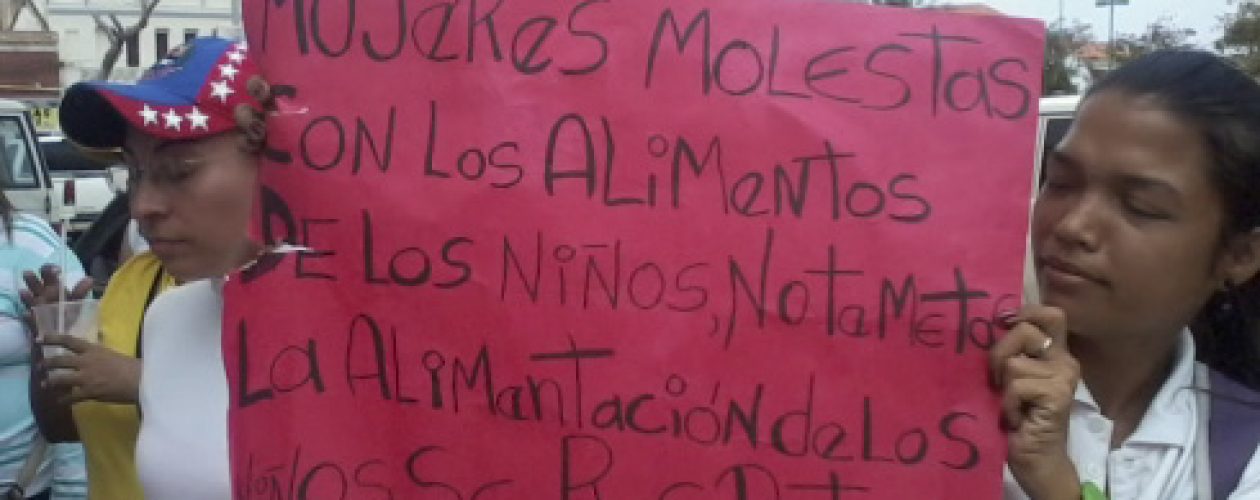 MUJeRes MOLEStas
CON Los ALiMentos
DE Los NiÑos, No ta Metas
La ALiMantación de Los